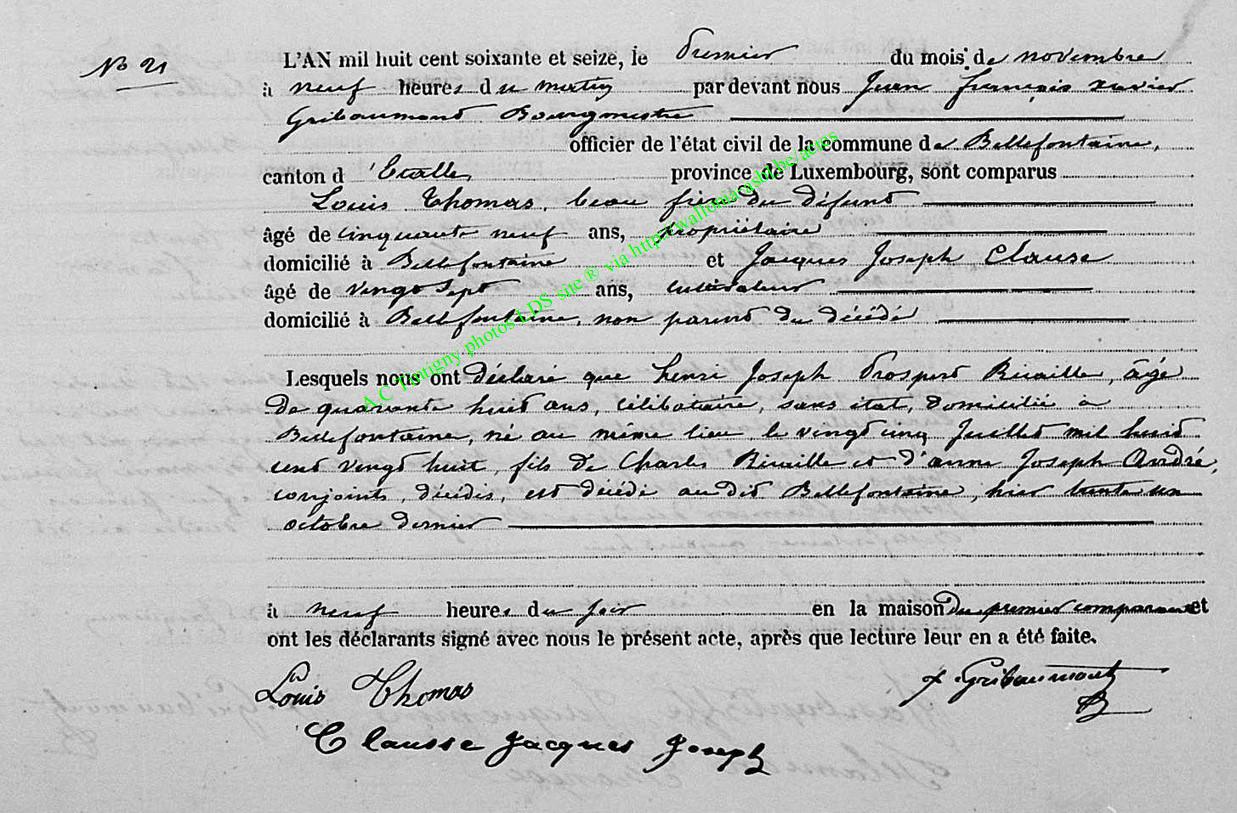 No 21
L'AN mil huit cent soixante et seize, le premier du mois de novembre
à neuf heures du matin par devant nous Jean François Xavier
Gribaumont Bourgmestre
officier de l'état civil de la commune de Bellefontaine,
canton d'Etalle province de Luxembourg, sont comparus
Louis Thomas, beau frère du défunt
âgé de cinquante neuf ans, propriétaire
domicilié à Bellefontaine et Jacques Joseph Clausse
âgé de vingt sept ans, cultivateur
domicilié à Bellefontaine, non parent du décédé
Lesquels nous ont déclaré que henri Joseph Prospert Bivaille, âgé
de quarante huit ans, célibataire, sans état, domicilié à
Bellefontaine, né au même lieu le vingt cinq Juillet mil huit
cent vingt huit, fils de Charles Bivaille et d'anne Joseph André,
conjoints, décédés, est décédé au dit Bellefontaine, hier trente un
octobre dernier
à neuf heures du soir en la maison du premier comparant et
ont les déclarants signé avec nous le présent acte, après que lecture leur en a été faite.
Louis Thomas
Gribaumont
Clausse Jacques Joseph
A.C Tintigny photos LDS site ® via http://wallonia.asbl.be/actas